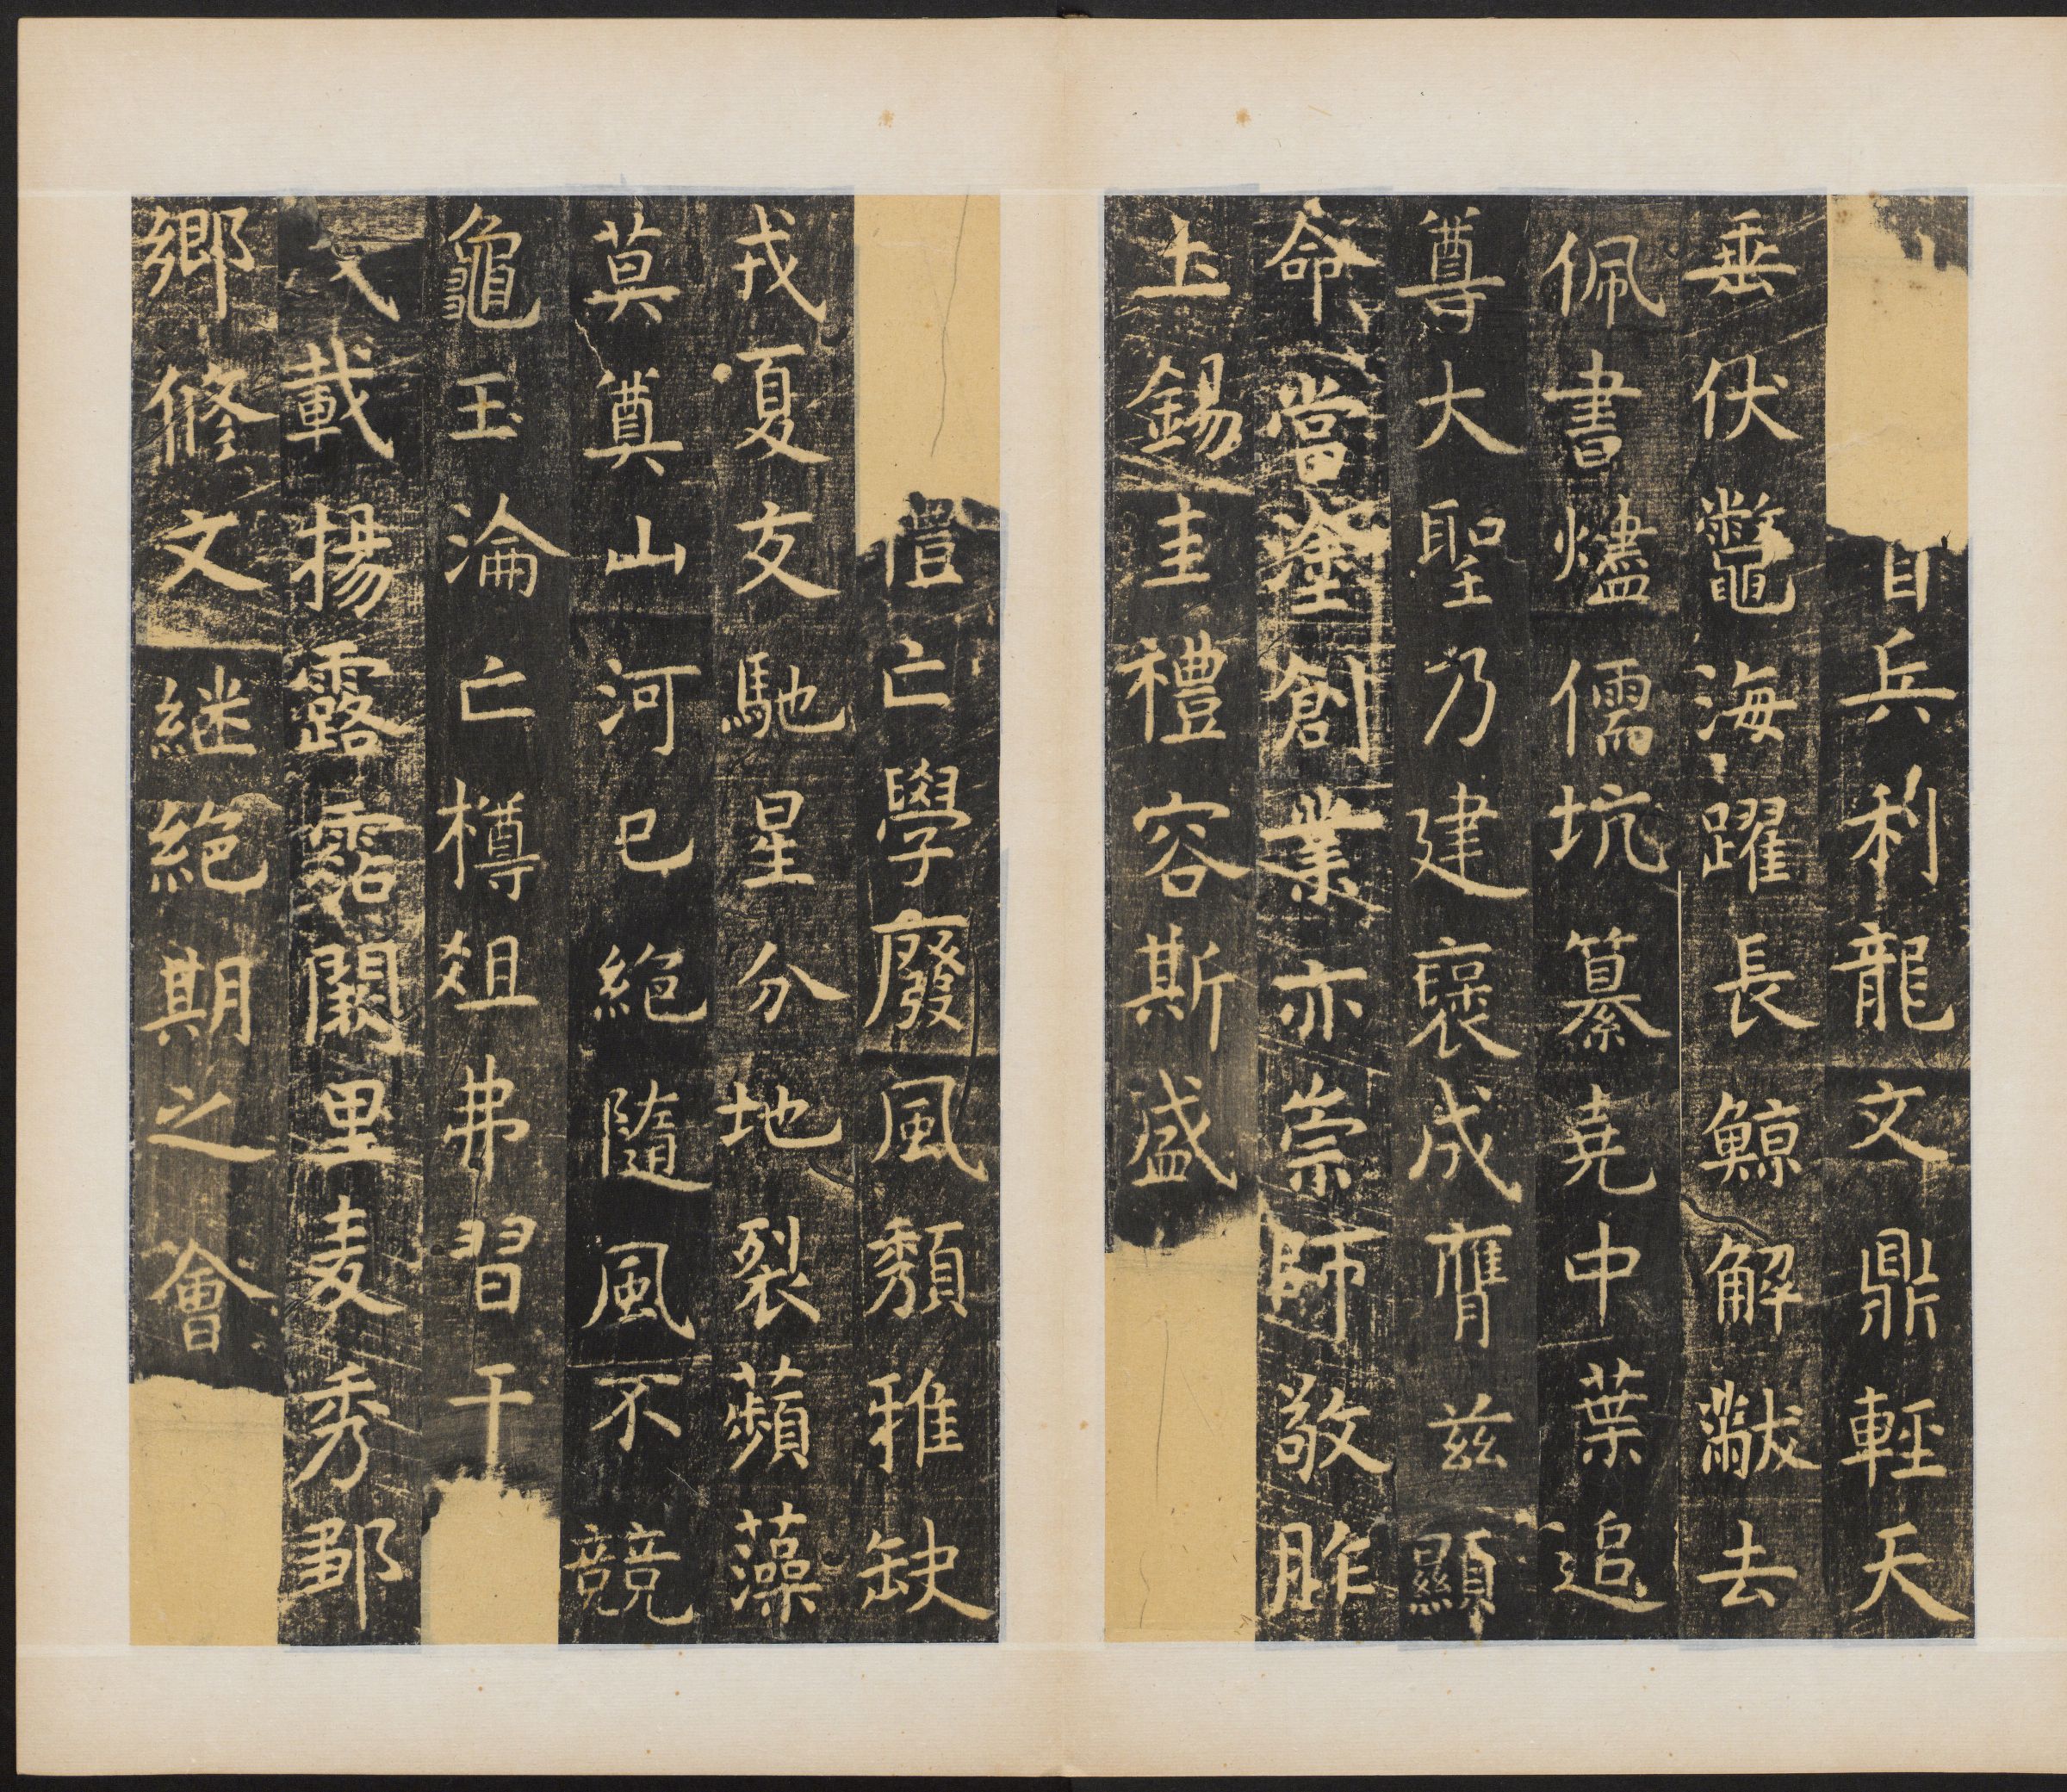 兵利龍文鼎輕天
垂伏鼈海躍長鯨解黻去
佩書燼儒坑纂堯中葉追
尊大聖乃建褒成膺茲顯
命當塗創業亦崇師敬胙
土錫圭禮容斯盛
亡學廢風頹雅缺
戎夏交馳星分地裂蘋藻
莫奠山河已絕隨風不競
龜玉淪亡樽俎弗習干
載揚露霑闕里麦秀鄒
鄉修文継絕期之會